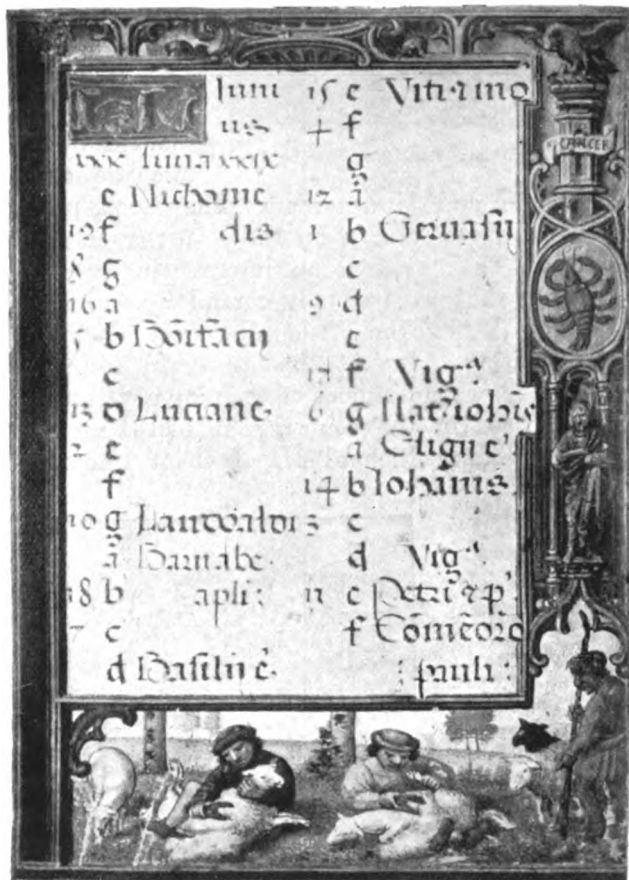 Iuni
us
xxx luna xxix
e Nichome
19 f dis
8 g
16 a
5 b Bōifacij
c
13 d Luciane.
2 e
f
10 g Landoaldi
a Barnabe.
18 b apli:
7 c
d Basilij e.
15 e Viti ⁊ mo
4 f
g
12 a
1 b Geruasij
c
9 d
e
17 f Vigᵃ
6 g Nat' iohīs
a Eligij e'
14 b Iohānis.
3 c
d Vigᵃ
11 e Petri ⁊ p'
f Cōmēorō
: pauli :
CANCER